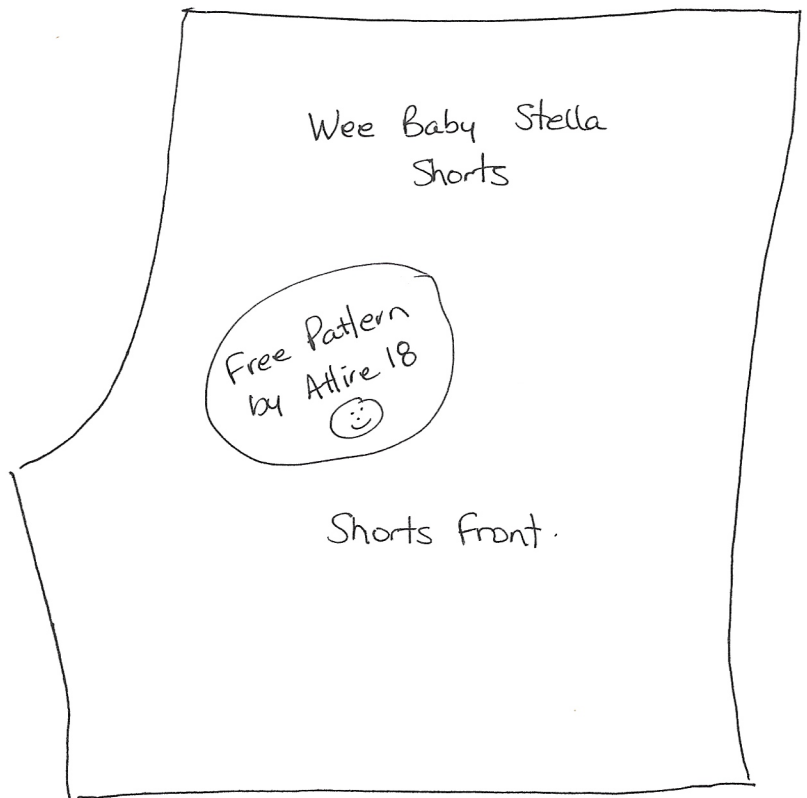 Wee Baby Stella
Shorts
Free Pattern
by Attire 18
Shorts Front.